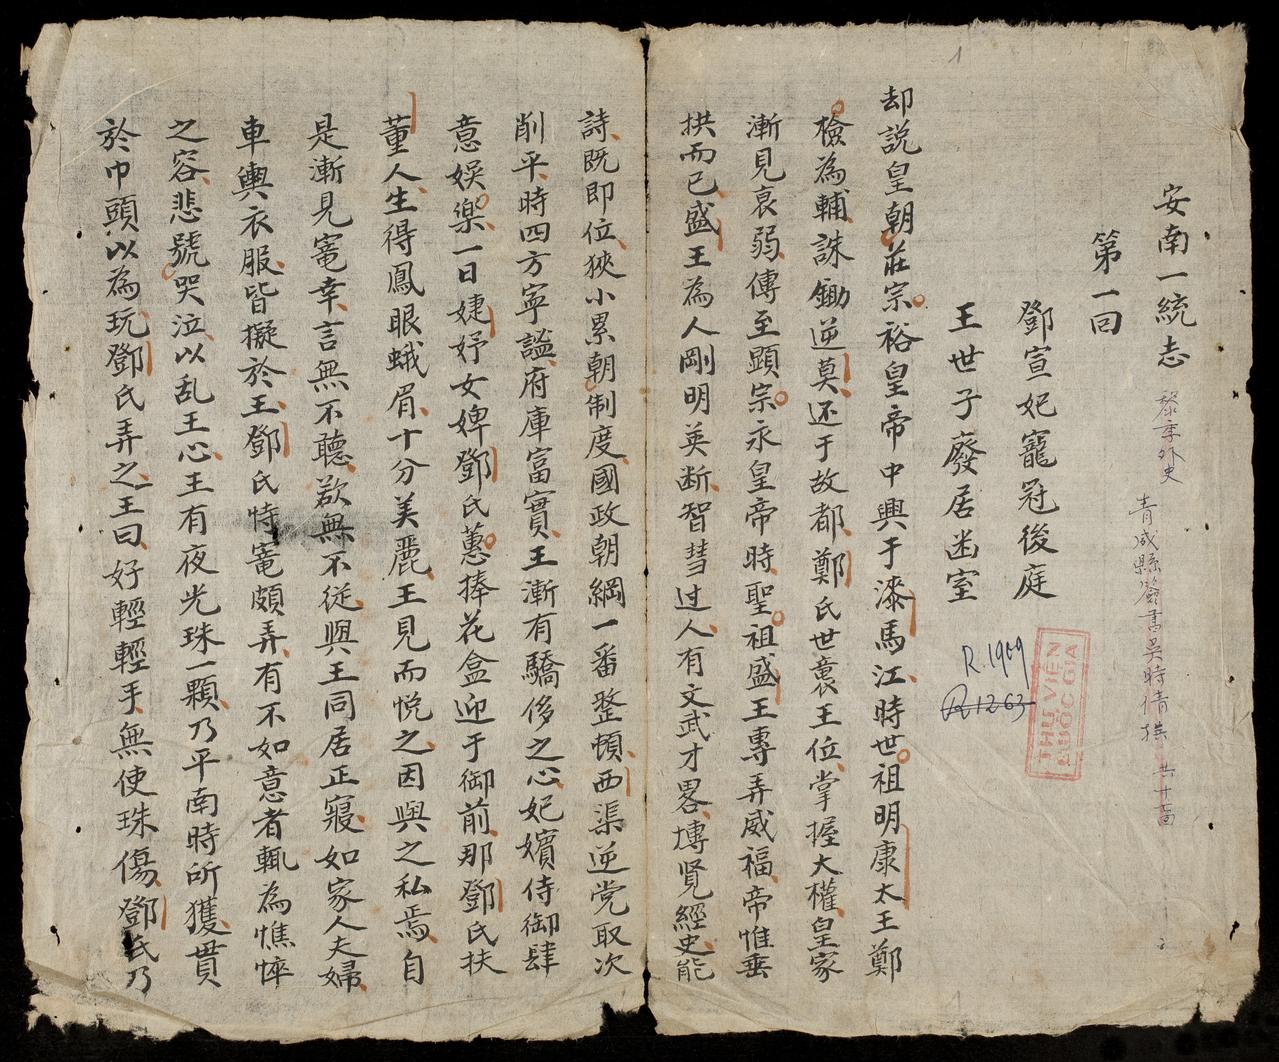 安南一統志
黎季外史
青威縣簽書吳時倩撰 共廿面
第一回
鄧宣妃寵冠後庭
王世子廢居凾室
R.1909
R1263
THƯ VIỆN
QUỐC GIA
1
却説皇朝莊宗裕皇帝中興于漆馬江時世祖明康太王鄭
檢為輔誅鋤逆莫还于故都鄭氏世襲王位掌握大權皇家
漸見衰弱傳至顕宗永皇帝時聖祖盛王專弄威福帝惟垂
拱而已盛王為人剛明英断智彗过人有文武才畧博覽經史能
詩既即位狹小累朝制度國政朝綱一番整頓西渠逆党取次
削平時四方寧謐府庫富實王漸有驕侈之心妃嬪侍御肆
意娱樂一日婕妤女婢鄧氏蕙捧花盒迎于御前那鄧氏扶
董人生得鳳眼蛾眉十分美麗王見而悦之因與之私焉自
是漸見寵幸言無不聽欲無不従與王同居正寢如家人夫婦
車輿衣服皆擬於王鄧氏恃寵頗弄有不如意者輒為憔悴
之容悲號哭泣以乱王心王有夜光珠一顆乃平南時所獲貫
於巾頭以為玩鄧氏弄之王曰好輕輕手無使珠傷鄧氏乃
1